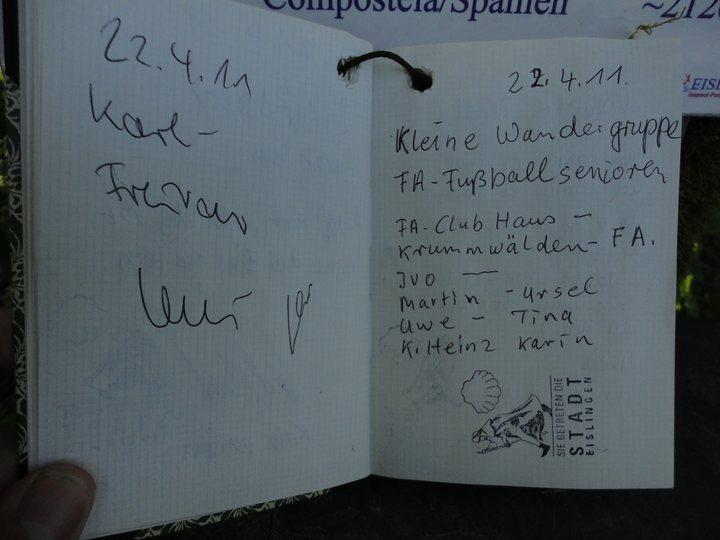 Compostela/Spanien ~212
EISL
22.4.11
Karl-
Freitag
22.4.11.
Kleine Wandergruppe
FA-Fußballsenioren
FA-Club Haus -
Krummwälden- FA.
Ivo —
Martin - Ursel
Uwe - Tina
K.Heinz Karin
SIE BETRETEN DIE
STADT
EISLINGEN